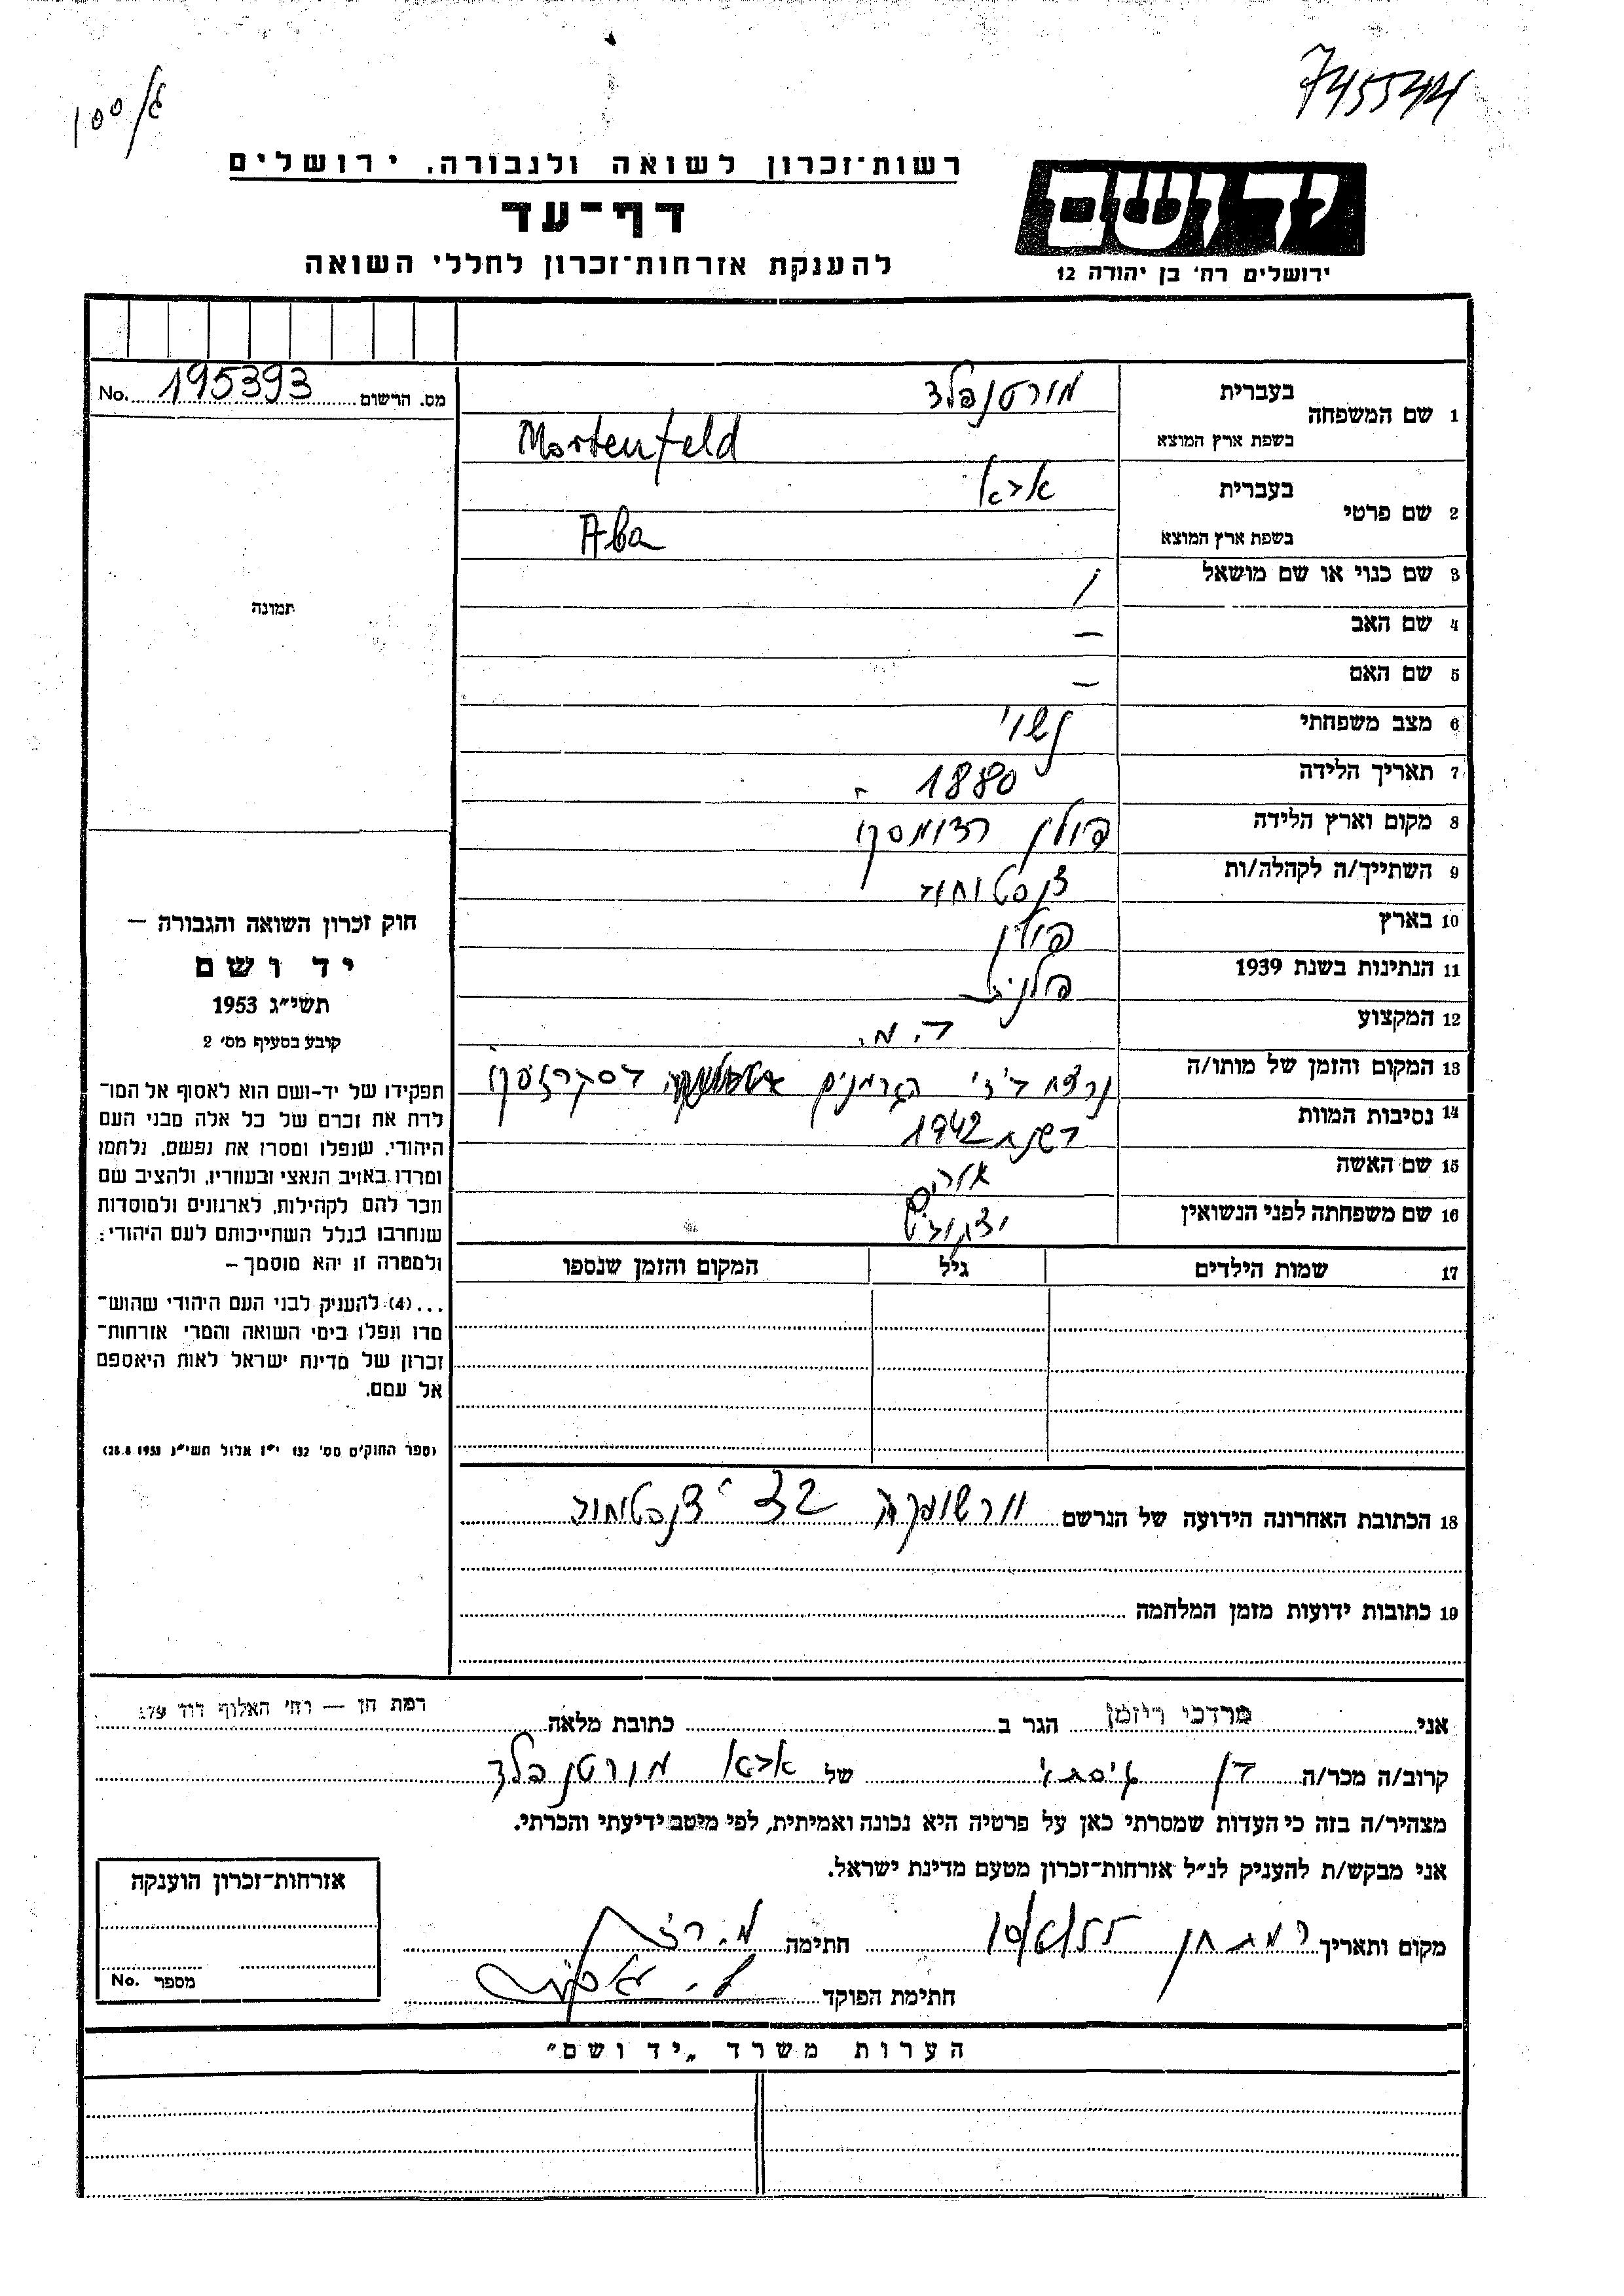 745544
ג/100
רשות־זכרון לשואה ולגבורה, ירושלים
דף־עד
להענקת אזרחות־זכרון לחללי השואה
יד ושם
ירושלים רח׳ בן יהודה 12
מס. הרשום 195393 No.
1 שם המשפחה בעברית מורטנפלד
בשפת ארץ המוצא Mortenfeld
2 שם פרטי בעברית אבא
בשפת ארץ המוצא Aba
3 שם כנוי או שם מושאל /
4 שם האב —
5 שם האם —
6 מצב משפחתי נשוי
7 תאריך הלידה 1880
8 מקום וארץ הלידה פולין רדומסקו
9 השתייך/ה לקהלה/ות צ'נסטוחוב
10 בארץ פולין
11 הנתינות בשנת 1939 פולנית
12 המקצוע
13 המקום והזמן של מותו/ה נרצח ע"י הגרמנים
14 נסיבות המוות בשנת 1942
15 שם האשה
16 שם משפחתה לפני הנשואין
17 שמות הילדים גיל המקום והזמן שנספו
תמונה
חוק זכרון השואה והגבורה —
יד ושם
תשי״ג 1953
קובע בסעיף מס׳ 2
תפקידו של יד-ושם הוא לאסוף אל המו־
לדת את זכרם של כל אלה מבני העם
היהודי, שנפלו ומסרו את נפשם, נלחמו
ומרדו באויב הנאצי ובעוזריו, ולהציב שם
וזכר להם לקהילות, לארגונים ולמוסדות
שנחרבו בגלל השתייכותם לעם היהודי;
ולמטרה זו יהא מוסמך –
...(4) להעניק לבני העם היהודי שהוש־
מדו ונפלו בימי השואה והמרי אזרחות־
זכרון של מדינת ישראל לאות היאספם
אל עמם.
(ספר החוקים מס׳ 132 י״ז אלול תשי״ג 28.8.1953)
18 הכתובת האחרונה הידועה של הנרשם 32 צ'נסטוחוב
19 כתובות ידועות מזמן המלחמה
אני מרדכי רייזמן הגר ב כתובת מלאה רמת חן — רח׳ האלוף דוד 179
קרוב/ה מכר/ה בן גיסתי של אבא מורטנפלד
מצהיר/ה בזה כי העדות שמסרתי כאן על פרטיה היא נכונה ואמיתית, לפי מיטב ידיעתי והכרתי.
אני מבקש/ת להעניק לנ״ל אזרחות־זכרון מטעם מדינת ישראל.
מקום ותאריך רמת חן 10/6/55 חתימה
חתימת הפוקד
אזרחות־זכרון הוענקה
מספר No.
הערות משרד „יד ושם״